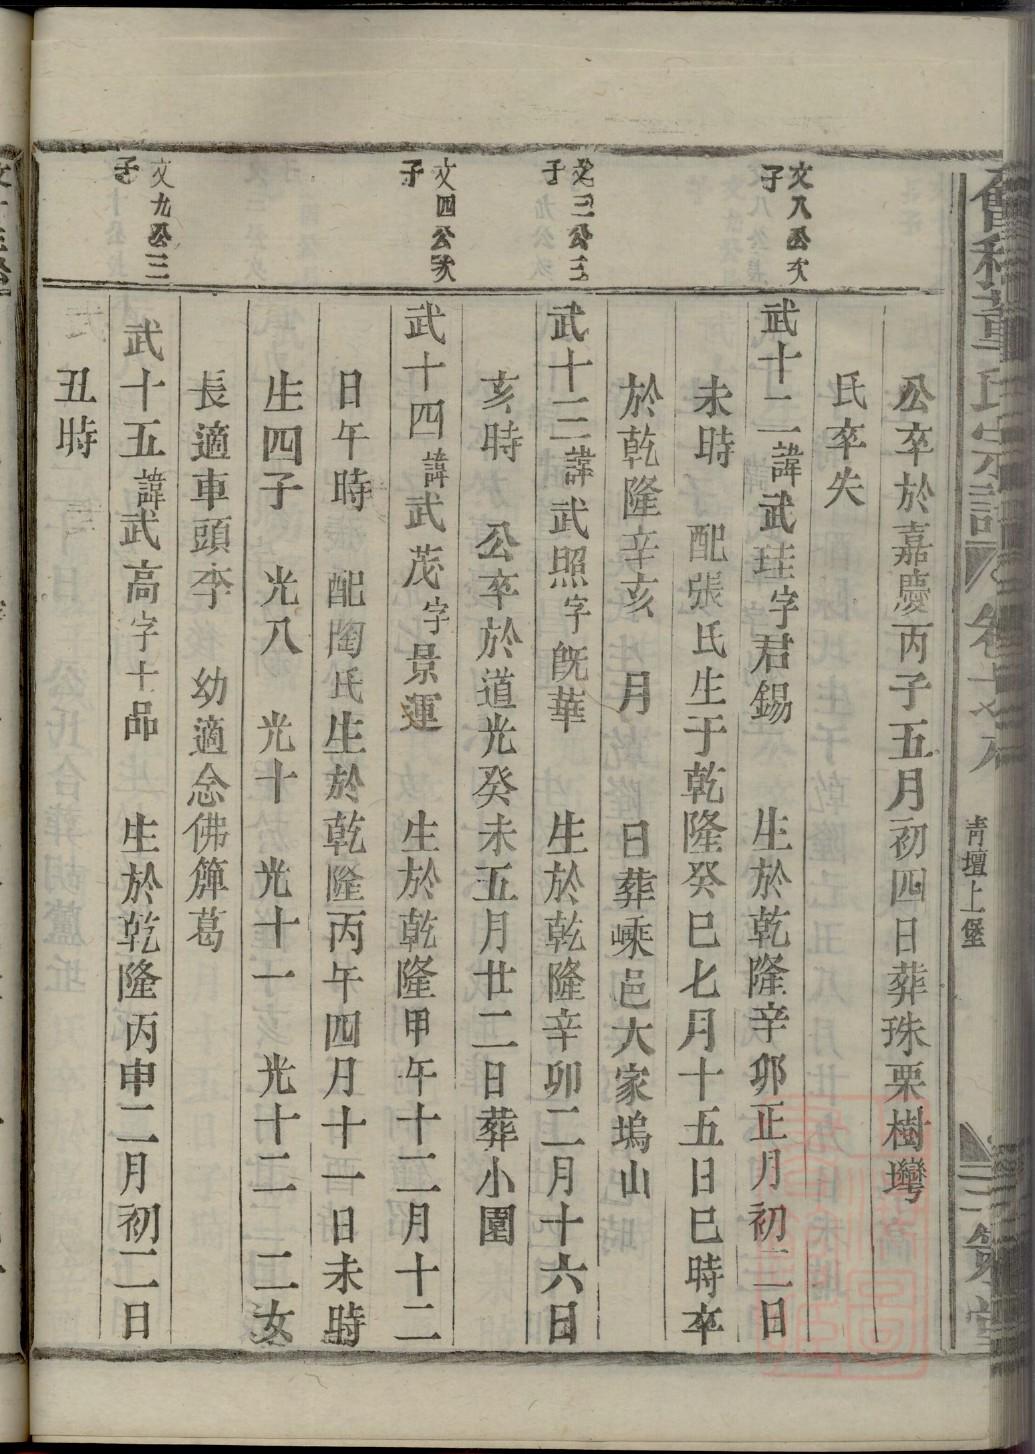 公卒於嘉慶丙子五月初四日葬珠栗樹灣
氏卒失
文八公次子
武十二諱武珪字君錫 生於乾隆辛卯正月初二日
未時 配張氏生于乾隆癸巳七月十五日巳時卒
於乾隆辛亥 月 日葬嵊邑大家塢山
文三公三子
武十三諱武照字旣華 生於乾隆辛卯二月十六日
亥時 公卒於道光癸未五月廿二日葬小園
文四公次子
武十四諱武茂字景運 生於乾隆甲午十二月十二
日午時 配陶氏生於乾隆丙午四月十一日未時
生四子 光八 光十 光十一 光十二 二女
長適車頭李 幼適念佛簰葛
文九公三子
武十五諱武高字十品 生於乾隆丙申二月初二日
丑時
董氏宗譜
青壇上堡